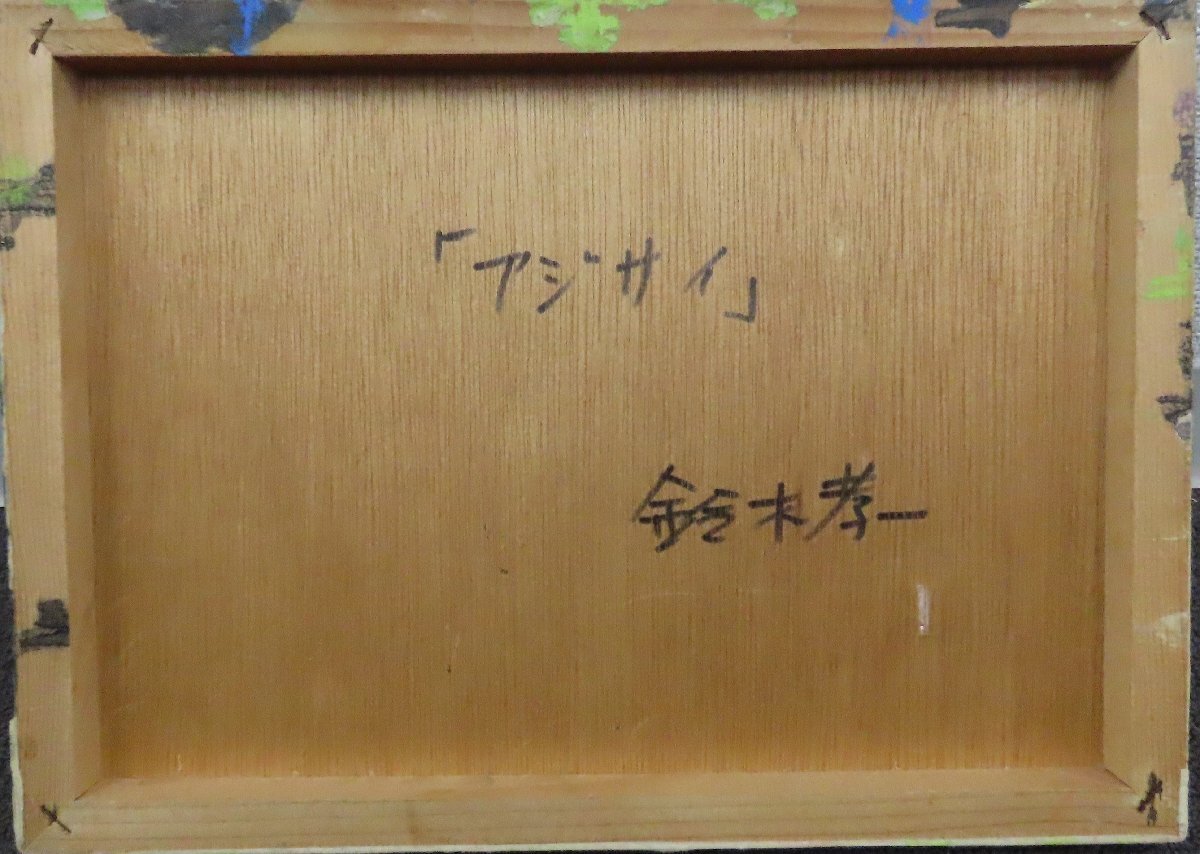 「アジサイ」
鈴木孝一